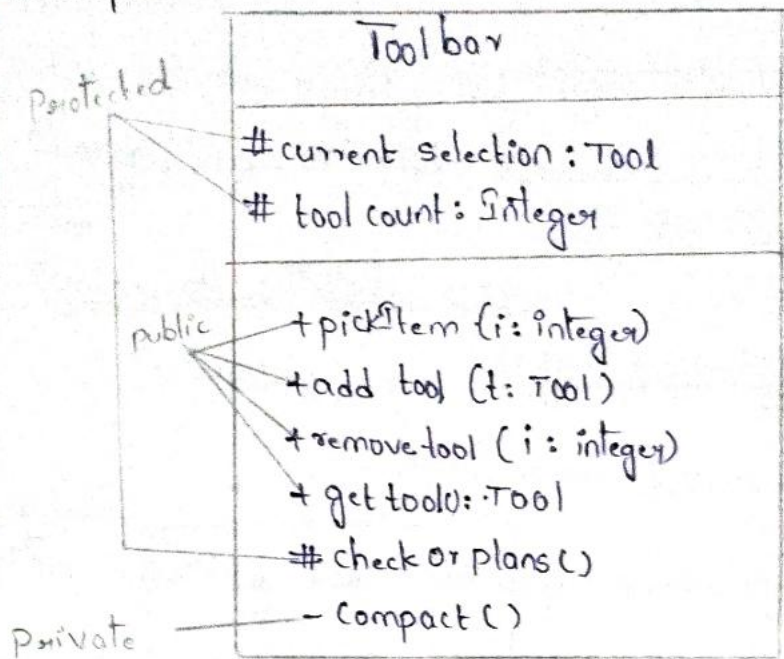 Toolbar
Protected
# current selection : Tool
# tool count : Integer
public
+ pickItem (i : integer)
+ add tool (t : Tool)
+ remove tool (i : integer)
+ get tool() : Tool
# check or plans ()
- Compact ()
Private